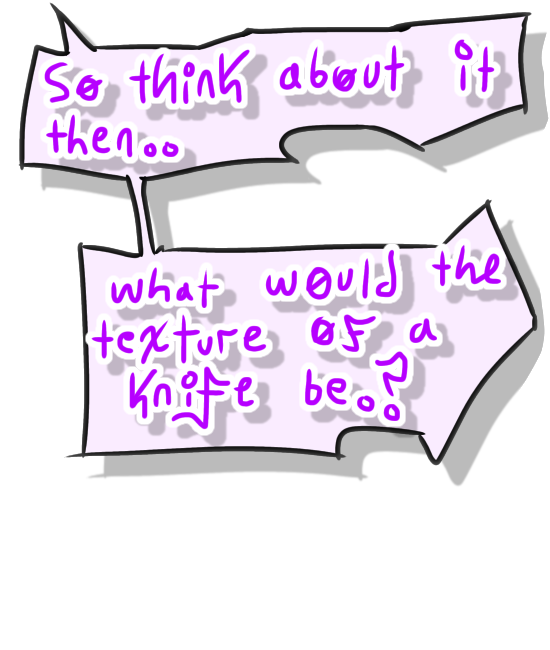 So think about it
then..
what would the
texture of a
knife be..?